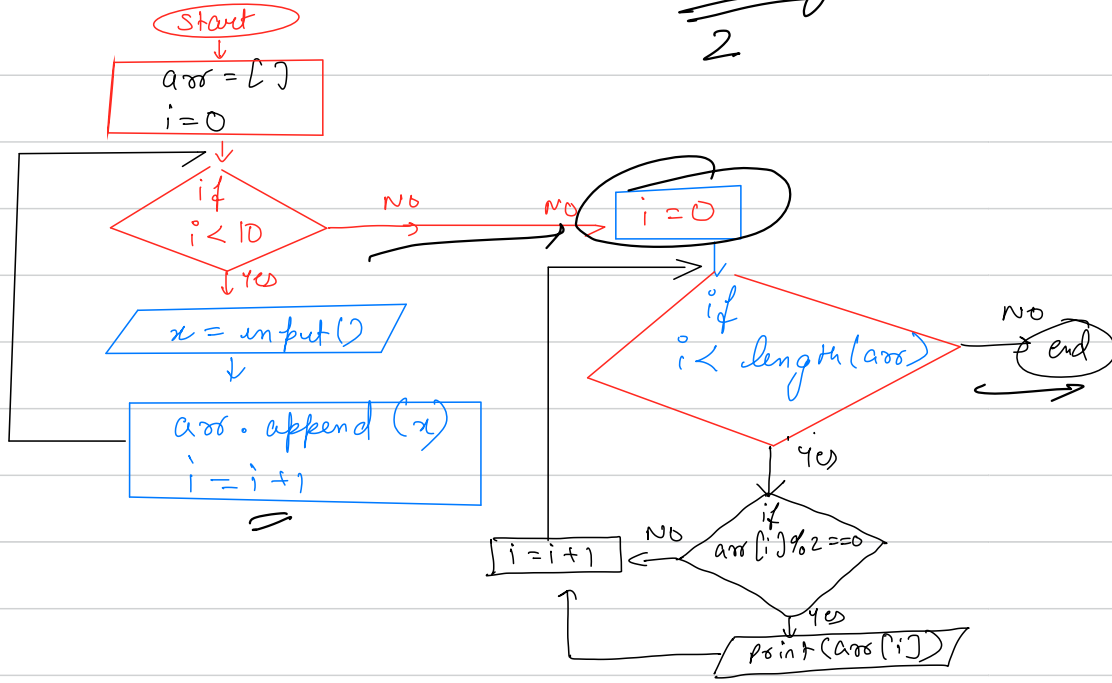 Start
2
arr = []
i = 0
if
i < 10
NO
NO
i = 0
Yes
x = input()
arr . append (x)
i = i + 1
if
i < length(arr)
NO
end
Yes
if
arr[i] % 2 == 0
NO
i = i + 1
Yes
print(arr[i])